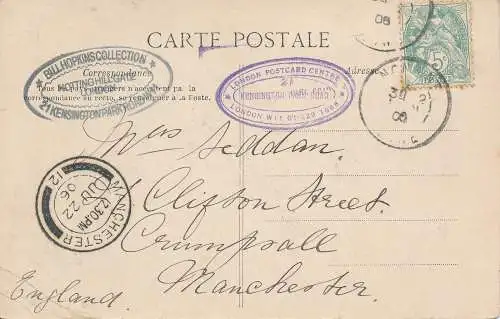 CARTE POSTALE
BILL HOPKINS COLLECTION
NOTTING HILL GATE
21 KENSINGTON PARK
LONDON POSTCARD CENTRE
21
KENSINGTON PARK ROAD
LONDON W11 01-229 1888
Correspondance
Tous les pays étrangers n'acceptent pas la
correspondance au recto, se renseigner à la Poste.
Adresse
5
06
Seddan.
1 Clifton Street.
Crumpsall
Manchester.
England.
MANCHESTER
12.30 PM
22
06
12